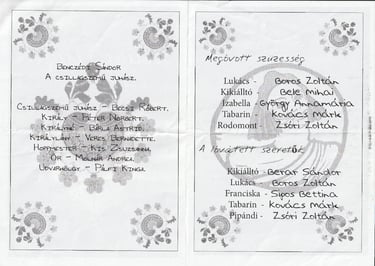 Benczédi Sándor
A csillagszemű juhász.
Csillagszemű juhász - Bécsi Róbert.
Király - Péter Norbert.
Királyné - Barla Astrid.
Királylány - Veres Bernadette.
Hoffmester - Kis Zsuzsanna.
Őr - Molnár Andrea.
Udvarhölgy - Pálfi Kinga.
Megóvott szüzesség
Lukács - Boros Zoltán
Kikiálltó - Bele Mihai
Izabella - György Annamária
Tabarin - Kovács Márk
Rodomont - Zsóri Zoltán
A lóvátett szeretők
Kikiálltó - Berar Sándor
Lukács - Boros Zoltán
Franciska - Sipos Bettina
Tabarin - Kovács Márk
Pipándi - Zsóri Zoltán